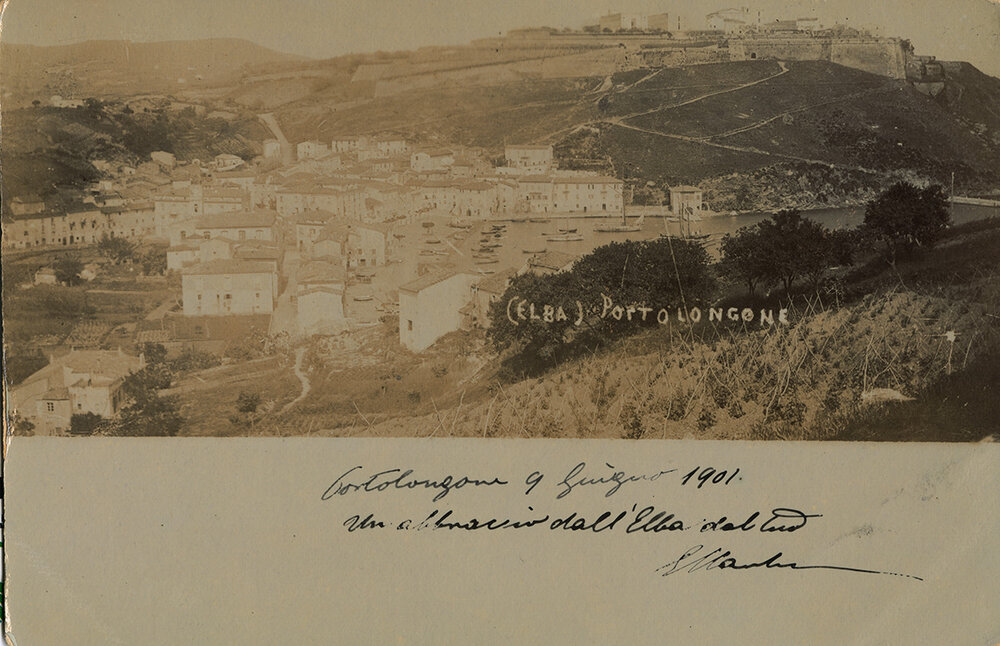 (ELBA) PORTOLONGONE
Portolongone 9 Giugno 1901.
Un abbraccio dall'Elba dal tuo